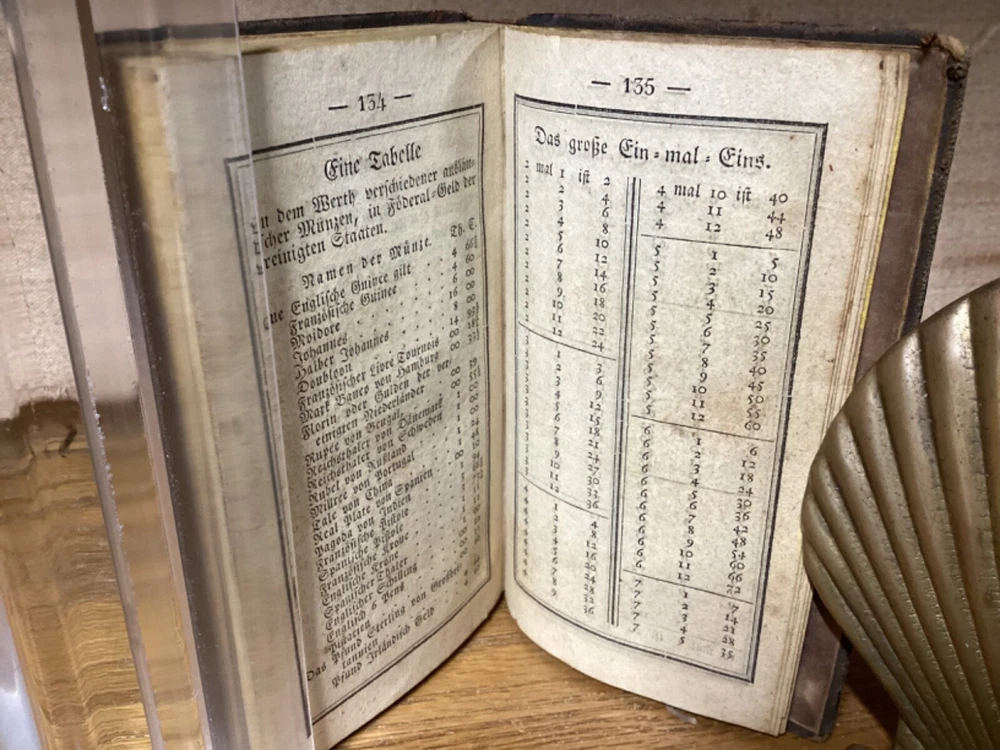 — 134 —
Eine Tabelle
dem Werth verschiedener auslän-
Münzen, in Föderal-Geld der
Staaten.
Namen der Münze. Th. C.
Englische Guinee gilt 4
Französische Guinee 4 60
Moidore 6 00
Johannes 16 00
Halber Johannes 8 00
Doubloon 14
Französischer Livre Tournois 00
Mark Banco von Hamburg 00
Florin oder Gulden der ver-
einigten Niederländer
Rupee von Bengal
Reichsthaler von Dänemark
Reichsthaler von Schweden
Rubel von Rußland
Milree von Portugal
Tale von China
Real Plate von Spanien
Pagoda von Indien
Französische Pistole
Spanische Pistole
Französische Krone
Englische Krone
Spanischer Thaler
Englischer Schilling
Englisch 6 Pens
Pistarien
Das Pfund Sterling von Großbri-
tannien
Pfund Irländisch Geld
— 135 —
Das große Ein-mal-Eins.
2 mal 1 ist 2
2 2 4
2 3 6
2 4 8
2 5 10
2 6 12
2 7 14
2 8 16
2 9 18
2 10 20
2 11 22
2 12 24
3 1 3
3 2 6
3 3 9
3 4 12
3 5 15
3 6 18
3 7 21
3 8 24
3 9 27
3 10 30
3 11 33
3 12 36
4 1 4
4 2 8
4 3 12
4 4 16
4 5 20
4 6 24
4 7 28
4 8 32
4 9 36
4 mal 10 ist 40
4 11 44
4 12 48
5 1 5
5 2 10
5 3 15
5 4 20
5 5 25
5 6 30
5 7 35
5 8 40
5 9 45
5 10 50
5 11 55
5 12 60
6 1 6
6 2 12
6 3 18
6 4 24
6 5 30
6 6 36
6 7 42
6 8 48
6 9 54
6 10 60
6 11 66
6 12 72
7 1 7
7 2 14
7 3 21
7 4 28
7 5 35